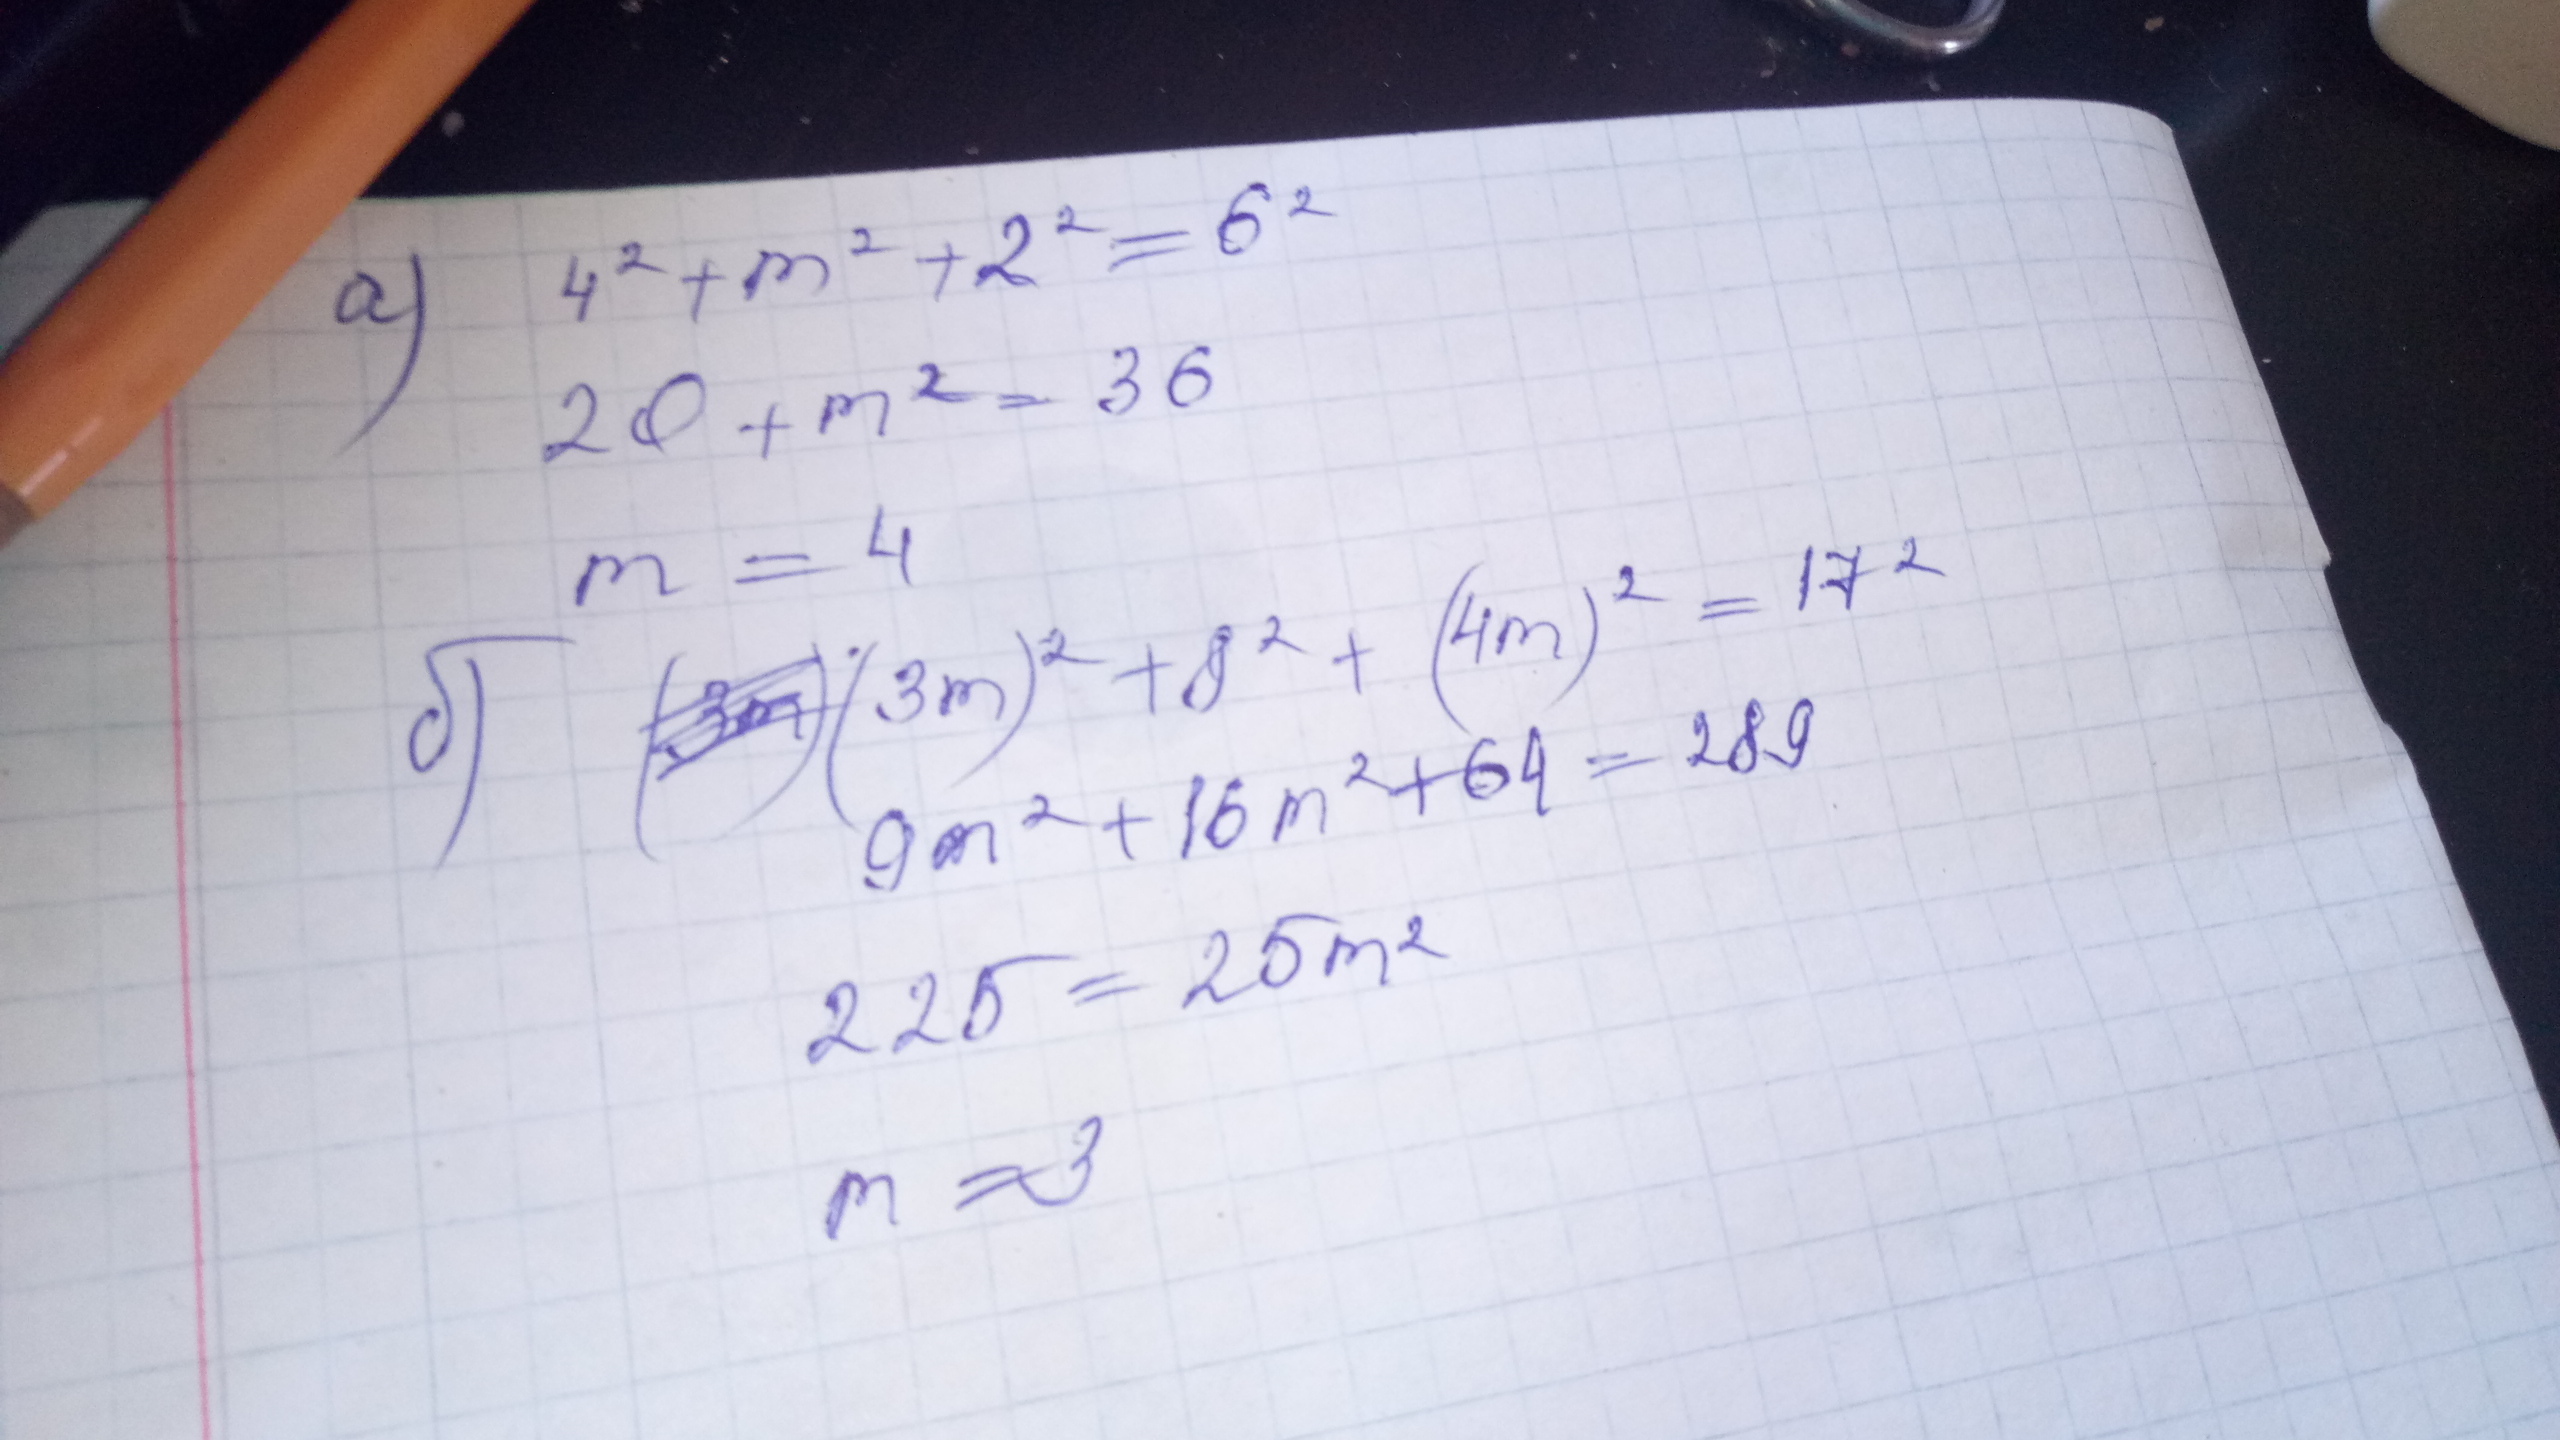 а) 4² + m² + 2² = 6²
20 + m² = 36
m = 4
б) (3m)² + 8² + (4m)² = 17²
9m² + 16m² + 64 = 289
225 = 25m²
m = 3